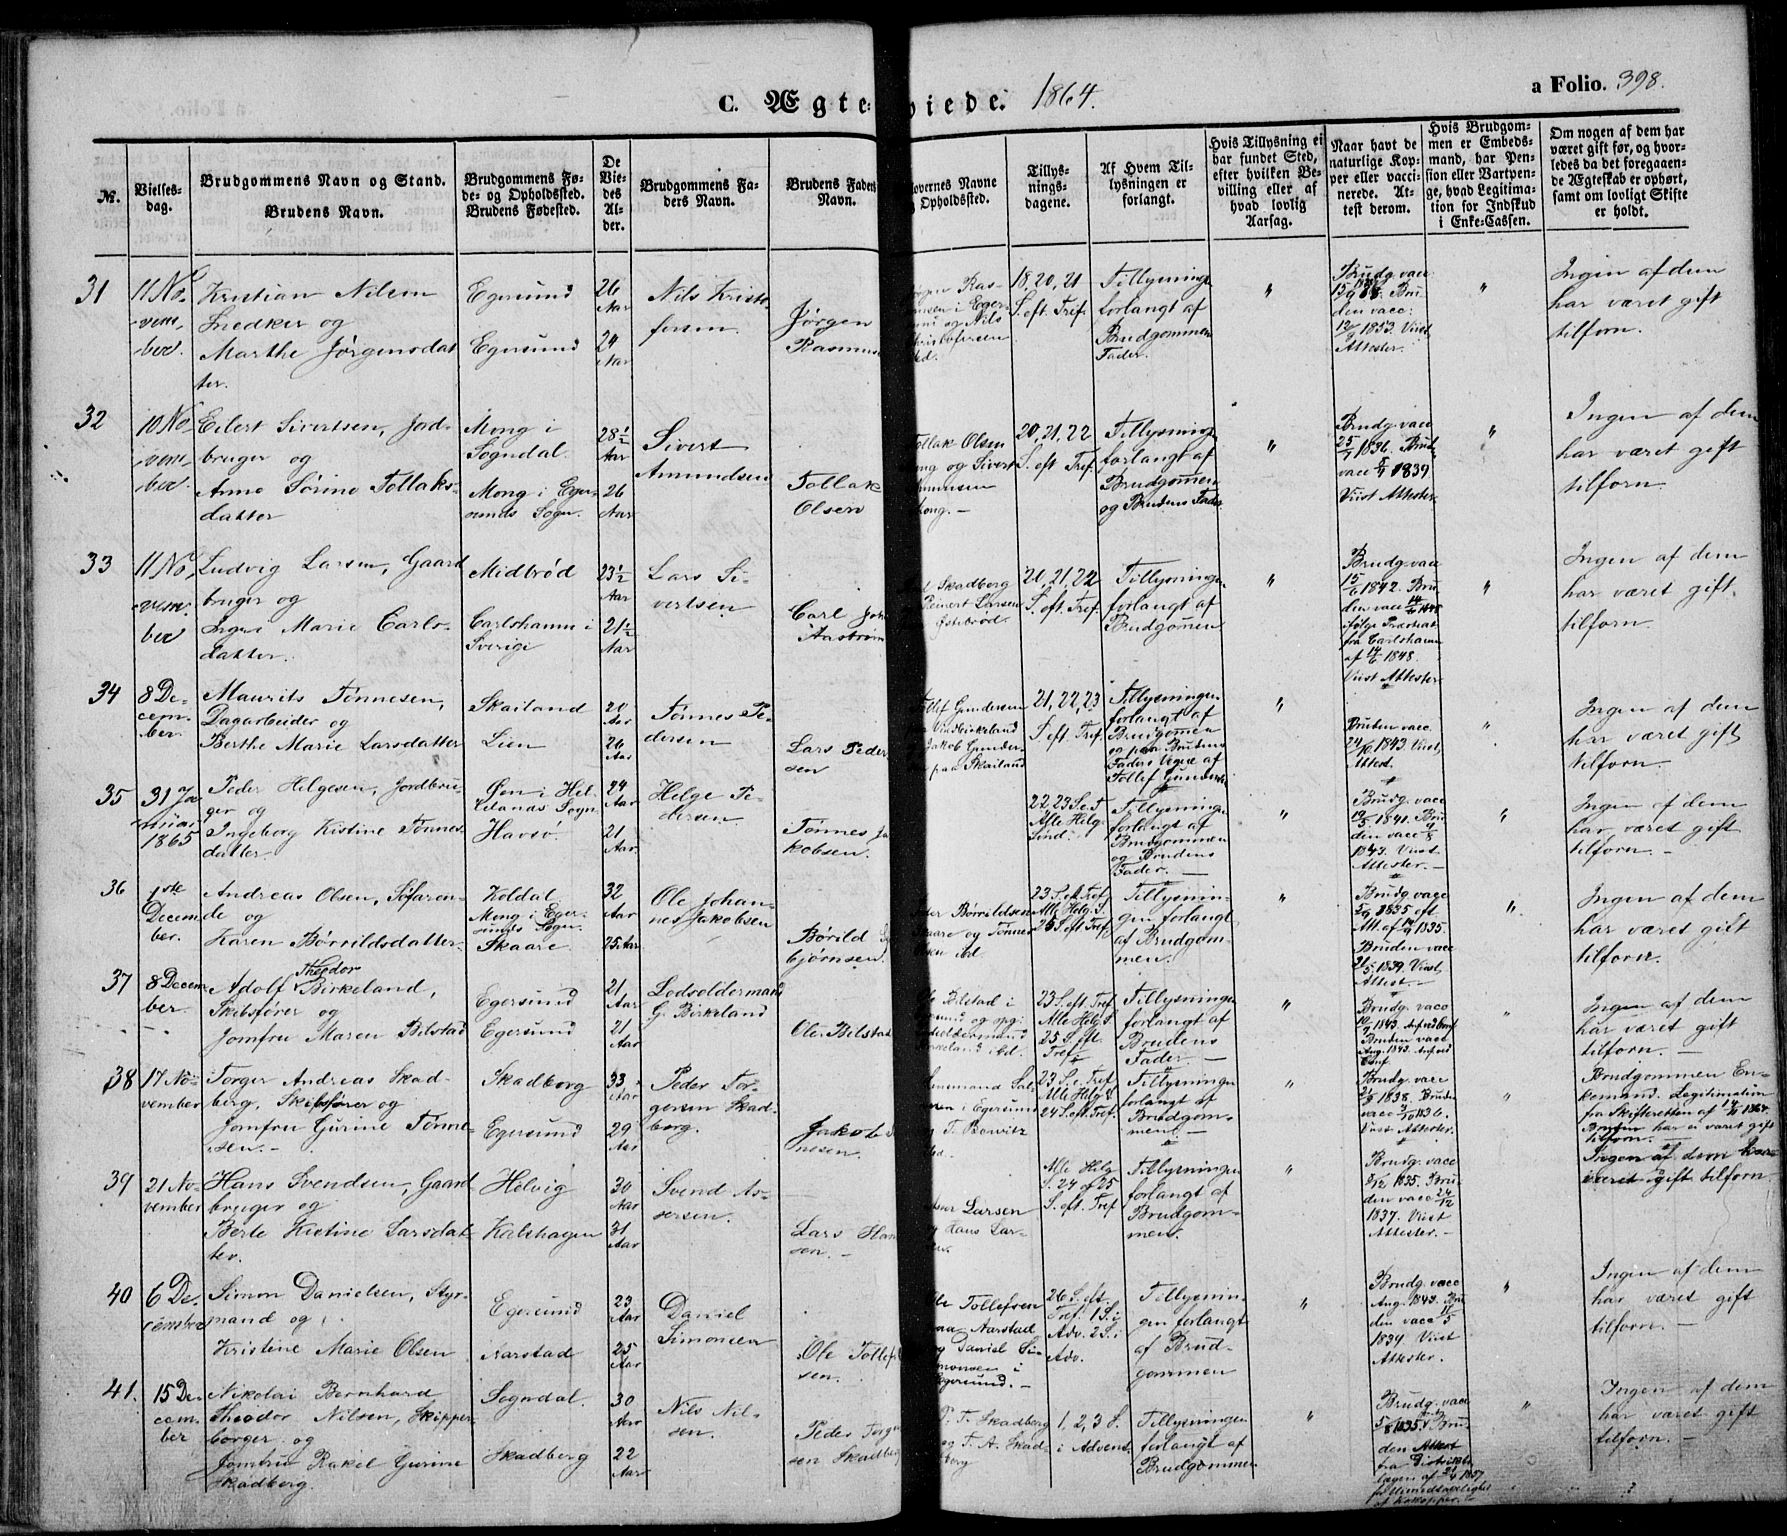 C. Ægte viede. 1864.
a Folio. 398.
No.
Vielses-
dag.
Brudgommens Navn og Stand.
Brudens Navn.
Brudgommens Fø-
de- og Opholdssted.
Brudens Fødested.
De
Vie-
des
Al-
der.
Brudgommens Fa-
ders Navn.
Brudens Faders
Navn.
overnes Navne
Opholdssted.
Tillys-
nings-
dagene.
Af Hvem Til-
lysningen er
forlangt.
Hvis Tillysning ei
har fundet Sted,
efter hvilken Be-
villing eller af
hvad lovlig
Aarsag.
Naar havt de
naturlige Kop-
per eller vacci-
nerede. At-
test derom.
Hvis Brudgom-
men er Embeds-
mand, har Pen-
sion eller Vartpen-
ge, hvad Legitima-
tion for Indskud
i Enke-Cassen.
Om nogen af dem har
været gift før, og hvor-
ledes da det foregaaen-
de Ægteskab er ophørt,
samt om lovligt Skifte
er holdt.
31
11 No-
vem-
ber.
Kristian Nilsen
Snedker og
Marthe Jørgensdat
ter.
Egersund
Egersund
26
Aar
24
Aar
Nils Kristo
fersen.
Jørgen
Rasmus
Jørgen Ras-
sen i Eger
sund og Nils
Kristofersen
ibd.
18, 20, 21
S. eft. Tref.
Tillysningen
forlangt af
Brudgommens
Fader.
"
Brudg. vacc
Bru
den vacc:
12/9 1853. Viist
Attester.
"
Ingen af dem
har været gift
tilforn.
32
10 No-
vem-
ber
Eilert Sivertsen, Jord-
bruger og
Anne Sørine Tollaks-
datter
Mong i
Sogndal.
Mong i Eger-
sunds Sogn.
28½
Aar
26
Aar
Sivert
Amundsen
Tollak
Olsen
Tollak Olsen
Mong og Sivert
Amunsen
Mong. -
20, 21, 22
S. eft Tref.
Tillysningen
forlangt af
Brudgommen
og Brudens Fader
"
Brudg. vacc
25/7 1836. Brud.
vacc 1839
Viist Attester.
"
Ingen af dem
har været gift
tilforn
33
11 No-
vem-
ber
Ludvig Larsen, Gaard
bruger og
Inger Marie Carls-
datter.
Midbrød
Carlshamn i
Sverige
23½
Aar
21½
Aar
Lars Si-
vertsen
Carl Joh
Aastrøm
Skadberg
Reinert Larsen
Østebrød.
20, 21, 22
S. eft. Tref.
Tillysningen
forlangt af
Brudgommen
"
Brudg. vacc
15/6 1842. Bru
den vacc 14/6 1848
ifølge Præsteat
fra Carlshamn
af 14/6 1848.
Viist Attester
"
Ingen af dem
har været gift
tilforn.
34
8 De-
cem-
ber.
Maurits Tønnesen,
Dagarbeider og
Berthe Marie Larsdatter
Skailand
Lien
20
Aar
26
Aar
Tønnes Pe-
dersen
Lars Peder
sen
Tollef Gundersen
Birkeland
Jakob Gunder-
paa Skailand
21, 22, 23
S. eft Tref.
Tillysningen
forlangt af
Brudgommen
og paa Brudens
Faders Vegne af
Tollef Gunders.
"
Bruden vacc
1843. Viist
Attest.
"
Ingen af dem
har været gift
tilforn.
35
31 Ja-
nuar
1865
Peder Helgesen, Jordbru-
ger og
Ingeborg Kistine Tønnes-
datter.
Øen i Hel-
lelands Sogn
Havsø.
24
Aar
21
Aar.
Helge Pe-
dersen
Tønnes Ja
kobsen.
22 23 S. e. T
Alle Helg.
Sønd.
Tillysningen
forlangt af
Brudgommen
og Brudens
Fader. -
"
Brudg. vacc
19/5 1841. Bru
den vacc 4/8
1843. Viist
Attester. -
"
Ingen af dem
har været gift
tilforn. -
36
1ste
Decem-
ber.
Andreas Olsen, Søfaren-
de og
Karen Børrildsdatter
Koldal
Mong i Eger-
sunds Sogn.
Skaare
32
Aar
25 Aar
Ole Johan-
nes Jakobsen
Børild
bjørnsen.
Peder Børrildsen
Skaare og Tønnes
Olsen ibd.
23 S. e. Tref.
Alle Helg. S.
25 S. eft Tref.
Tillysnin-
gen forlangt
af Brudgom-
men.
"
Brudg. vacc
1835 eft
Att. af 1835.
Bruden vacc
21/5 1839. Viist
Attest. -
"
Ingen af dem
har været gift
tilforn.
37
8 Decem
ber.
Adolf Theodor Birkeland,
Skibsfører og
Jomfru Maren Bilstad
Egersund
Egersund
21
Aar
21
Aar
Lodsoldermand
G. Birkeland
Ole Bilstad
Ole Bilstad i
Egersund og
Lodsoldermand
Birkeland ibd.
23 S. eft Tref
Alle Helg S
25 S. eft.
Tref.
Tillysningen
forlangt af
Brudens
Fader. -
"
Brudg. vacc
1843. Anf. ved Conf
Bruden vacc
Aug. 1843. Anf. ved
Conf
"
Ingen af dem
har været gift
tilforn. -
38
17 No-
vember
Torger Andreas Skad-
berg, Skibsfører og
Jomfru Gurine Tønne-
sen. -
Skadberg
Egersund
33
Aar
29
Aar
Peder Tor-
gersen Skad-
berg.
Jakob
nesen.
i Egersund
T. Puntervold
ibd.
23 S. e. Tref
Alle Helg S
24 S. eft Tref.
Tillysningen
forlangt af
Brudgom-
men. -
"
Brudg. vacc
1838. Brud.
vacc 1836.
Viist Attester.
"
Brudgommen En-
kemand. Legitimation
fra Skifteretten af 1864.
Bruden har ei været gift
tilforn. -
39
21 No-
vember
Hans Svendsen, Gaard
bruger og
Berte Kistine Larsdat
ter.
Helvig
Kalshagen
30
Aar
31
Aar
Svend As-
sersen.
Lars Han
sen. -
Larsen
Hans Lar-
sen.
Alle Helg
S. 24 og 25
S. eft. Tref
Tillysningen
forlangt af
Brudgom-
men.
"
Brudg. vacc
1835. Bru
den vacc 24/12
1837. Viist
Attester. -
Ingen af dem har
været gift tilforn
40
6 De-
cember
Simon Danielsen, Styr-
mand og
Kristine Marie Olsen
Egersund
Aarstad
23
Aar
25
Aar
Daniel
Simonsen
Ole Tollef
sen.
Ole Tollefsen
paa Aarstad
og Daniel Si-
monsen i
Egersund. -
26 S. eft.
Tref. 1 S. i
Adv. 2 S. i
Adv.
Tillysnin-
gen forlangt
af Brud-
gommen
"
Brudg. vacc
Aug. 1843. Bru
den vacc
1839 Viist
Attester.
"
Ingen af dem
har været gift
tilforn. -
41.
15 De-
cem-
ber
Nikolai Bernhard
Theodor Nilsen, Skipper
borger og
Jomfru Rakel Gurine
Skadberg.
Sogndal.
Skadberg
30
Aar
22
Aar
Nils Nil-
sen.
Peder Torger
sen Skadberg
P. T. Skadberg
og T. A. Skad-
berg
1, 2, 3 S.
i Advent.
Tillysningen
forlangt af
Brudgommen
"
Brudg. vacc
5/8 1835. Bru-
den Attest
fra Distrikts-
lægen af 1857
"
Ingen af dem
har været gift
tilforn. -